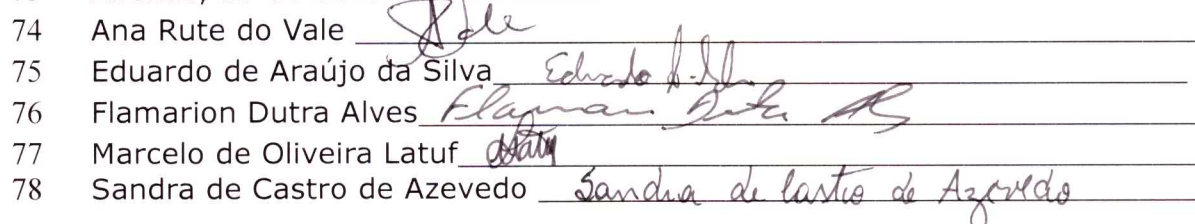 74 Ana Rute do Vale Vale
75 Eduardo de Araújo da Silva Eduardo A. Silva
76 Flamarion Dutra Alves Flamarion Dutra
77 Marcelo de Oliveira Latuf
78 Sandra de Castro de Azevedo Sandra de Castro de Azevedo